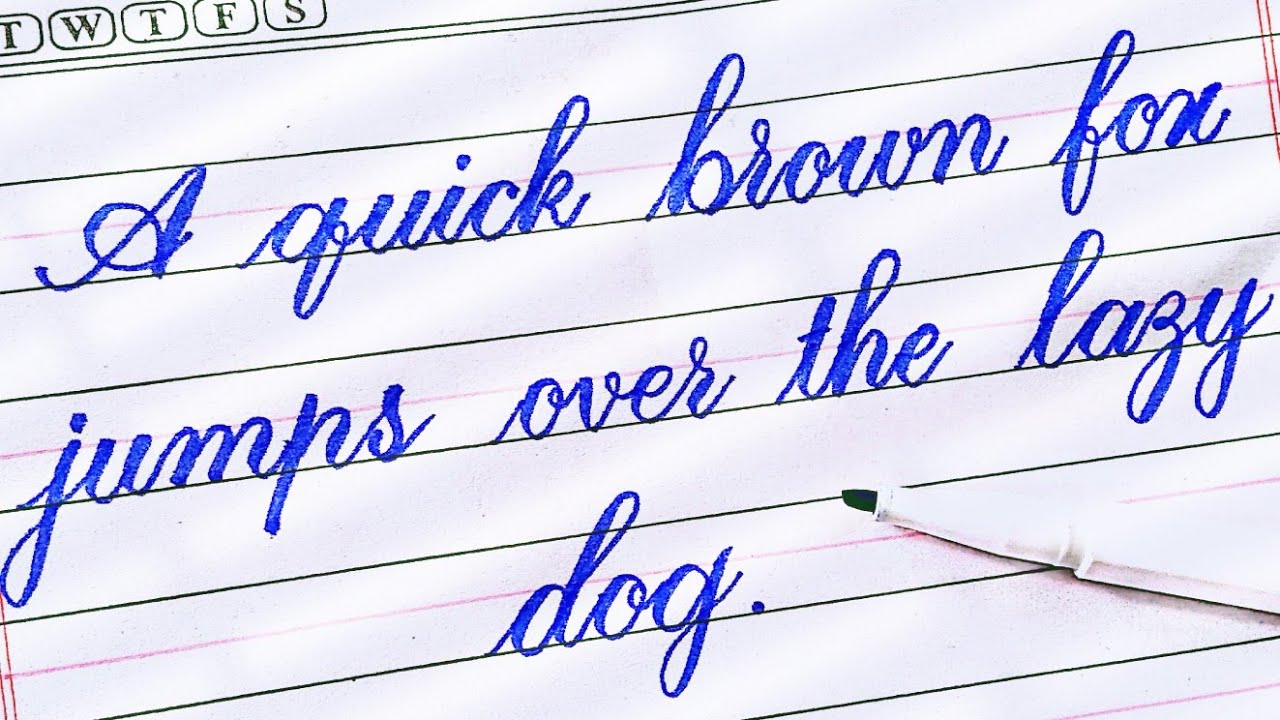 T W T F S
A quick brown fox
jumps over the lazy
dog.